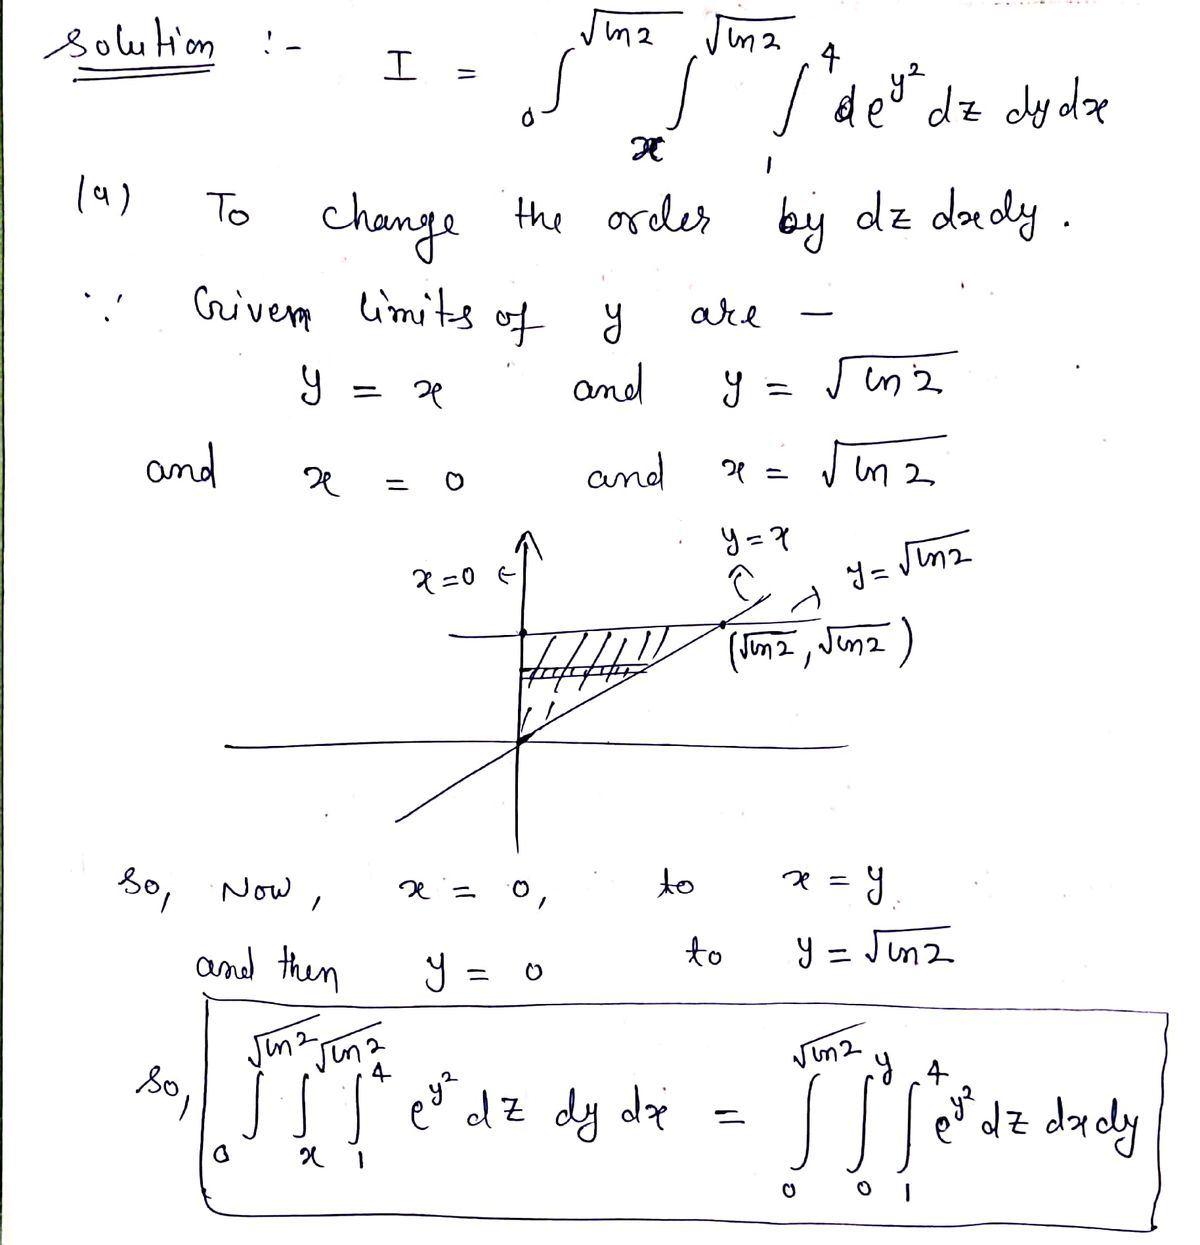 Solution :- I = ∫_0^√ln2 ∫_x^√ln2 ∫_1^4 d e^y² dz dy dx
(a) To change the order by dz dx dy.
∵ Given limits of y are –
y = x and y = √ln 2
and x = 0 and x = √ln 2
y = x
x = 0
y = √ln2
(√ln2, √ln2)
So, Now, x = 0, to x = y
and then y = 0 to y = √ln2
So, ∫_0^√ln2 ∫_x^√ln2 ∫_1^4 e^y² dz dy dx = ∫_0^√ln2 ∫_0^y ∫_1^4 e^y² dz dx dy